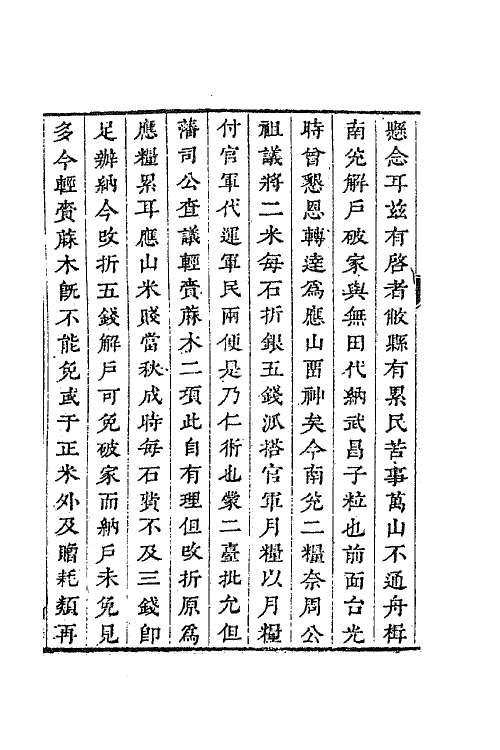 懸念耳茲有啓者敝縣有累民苦事萬山不通舟楫
南兊解戶破家與無田代納武昌子粒也前面台光
時曾懇恩轉達爲應山畱神矣今南兊二糧奈周公
祖議將二米每石折銀五錢派搭官軍月糧以月糧
付官軍代運軍民兩便是乃仁術也蒙二臺批允但
藩司公查議輕賫蔴木二項此自有理但改折原爲
應糧累耳應山米賤當秋成時每石費不及三錢卽
足辦納今改折五錢解戶可免破家而納戶未免見
多今輕賫蔴木旣不能免或于正米外及贈耗類再